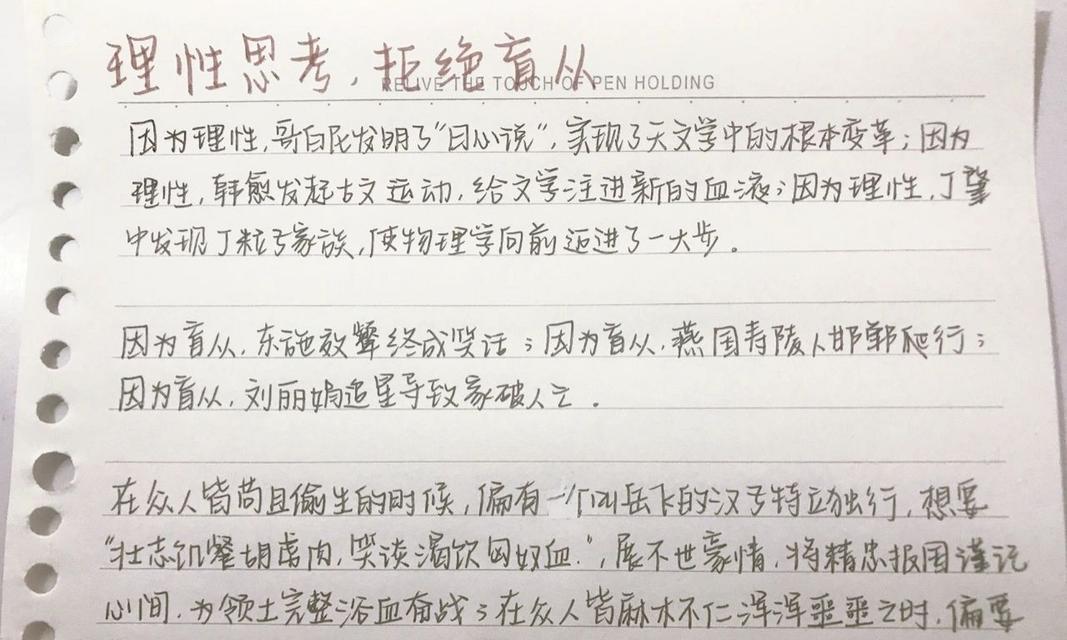 理性思考，拒绝盲从
RELIVE THE TOUCH OF PEN HOLDING
因为理性，哥白尼发明了“日心说”，实现了天文学中的根本变革；因为
理性，韩愈发起古文运动，给文学注进新的血液；因为理性，丁肇
中发现J粒子家族，使物理学向前迈进了一大步。
因为盲从，东施效颦终成笑话；因为盲从，燕国寿陵人邯郸爬行；
因为盲从，刘丽娟追星导致家破人亡。
在众人皆苟且偷生的时候，偏有一个叫岳飞的汉子特立独行，想要
“壮志饥餐胡虏肉，笑谈渴饮匈奴血.”，展不世豪情，将精忠报国谨记
心间，为领土完整浴血奋战；在众人皆麻木不仁浑浑噩噩之时，偏要